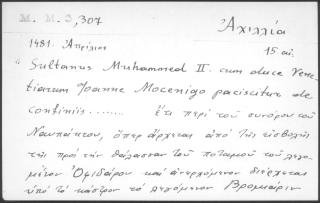 M. M. 3, 307
Ἀχιλλία
1481. Ἀπρίλιος
15 αἰ.
"Sultanus Muhammed II. cum duce Vene-
tiarum Joanne Mocenigo paciscitur de
confiniis........ ἔτι περὶ τοῦ συνόρου τοῦ
Ναυπάκτου, ὅπερ ἄρχεται ἀπὸ τῆς εἰσβολῆς
τῆς πρὸς τὴν θάλασσαν τοῦ ποταμοῦ τοῦ λεγο-
μένου Ὀφιδάρου καὶ ἀνερχόμενον διέρχεται
ὑπὸ τὸ κάστρον τὸ λεγόμενον Βρομμίαριν